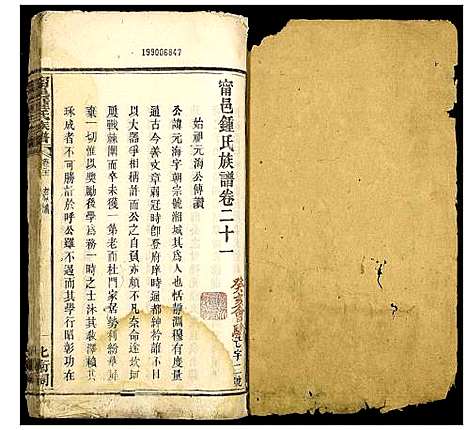 199006847
甯邑鍾氏族譜卷二十一
始祖元海公傳讚
公諱元海字朝宗號湘城其爲人也恬靜淵穆有度量
通古今善文章弱冠時卽登府庠時逼都紳衿誰不
以大器爭相期許而公之自負亦頗不凡奈命途坎坷
鏖戰棘圍而卒未獲一第老而杜門家居勢利紛華
棄一切惟以獎勵後學爲務一時之士沐其敎澤賴其
珠成者不可勝計於呼公雖不遇而其學行昭彰功在
甯邑鍾氏族譜